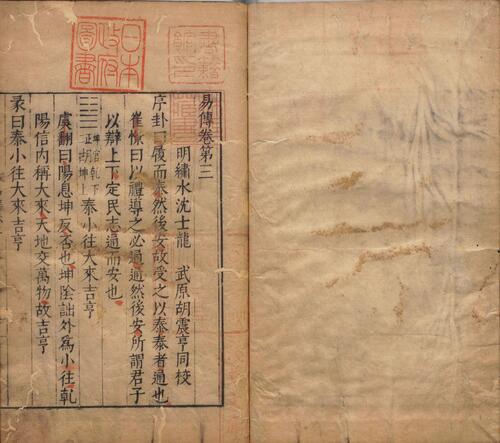 日本政府圖書
書籍館印
易傳卷第三
明繡水沈士龍 武原胡震亨同校
序卦曰履而泰然後安故受之以泰泰者通也
崔憬曰以禮導之必通通然後安所謂君子
以辯上下定民志通而安也
䷊ 宮乾下 坤上 泰小往大來吉亨
虞翻曰陽息坤反否也坤陰詘外為小往乾
陽信內稱大來天地交萬物故吉亨
彖曰泰小往大來吉亨